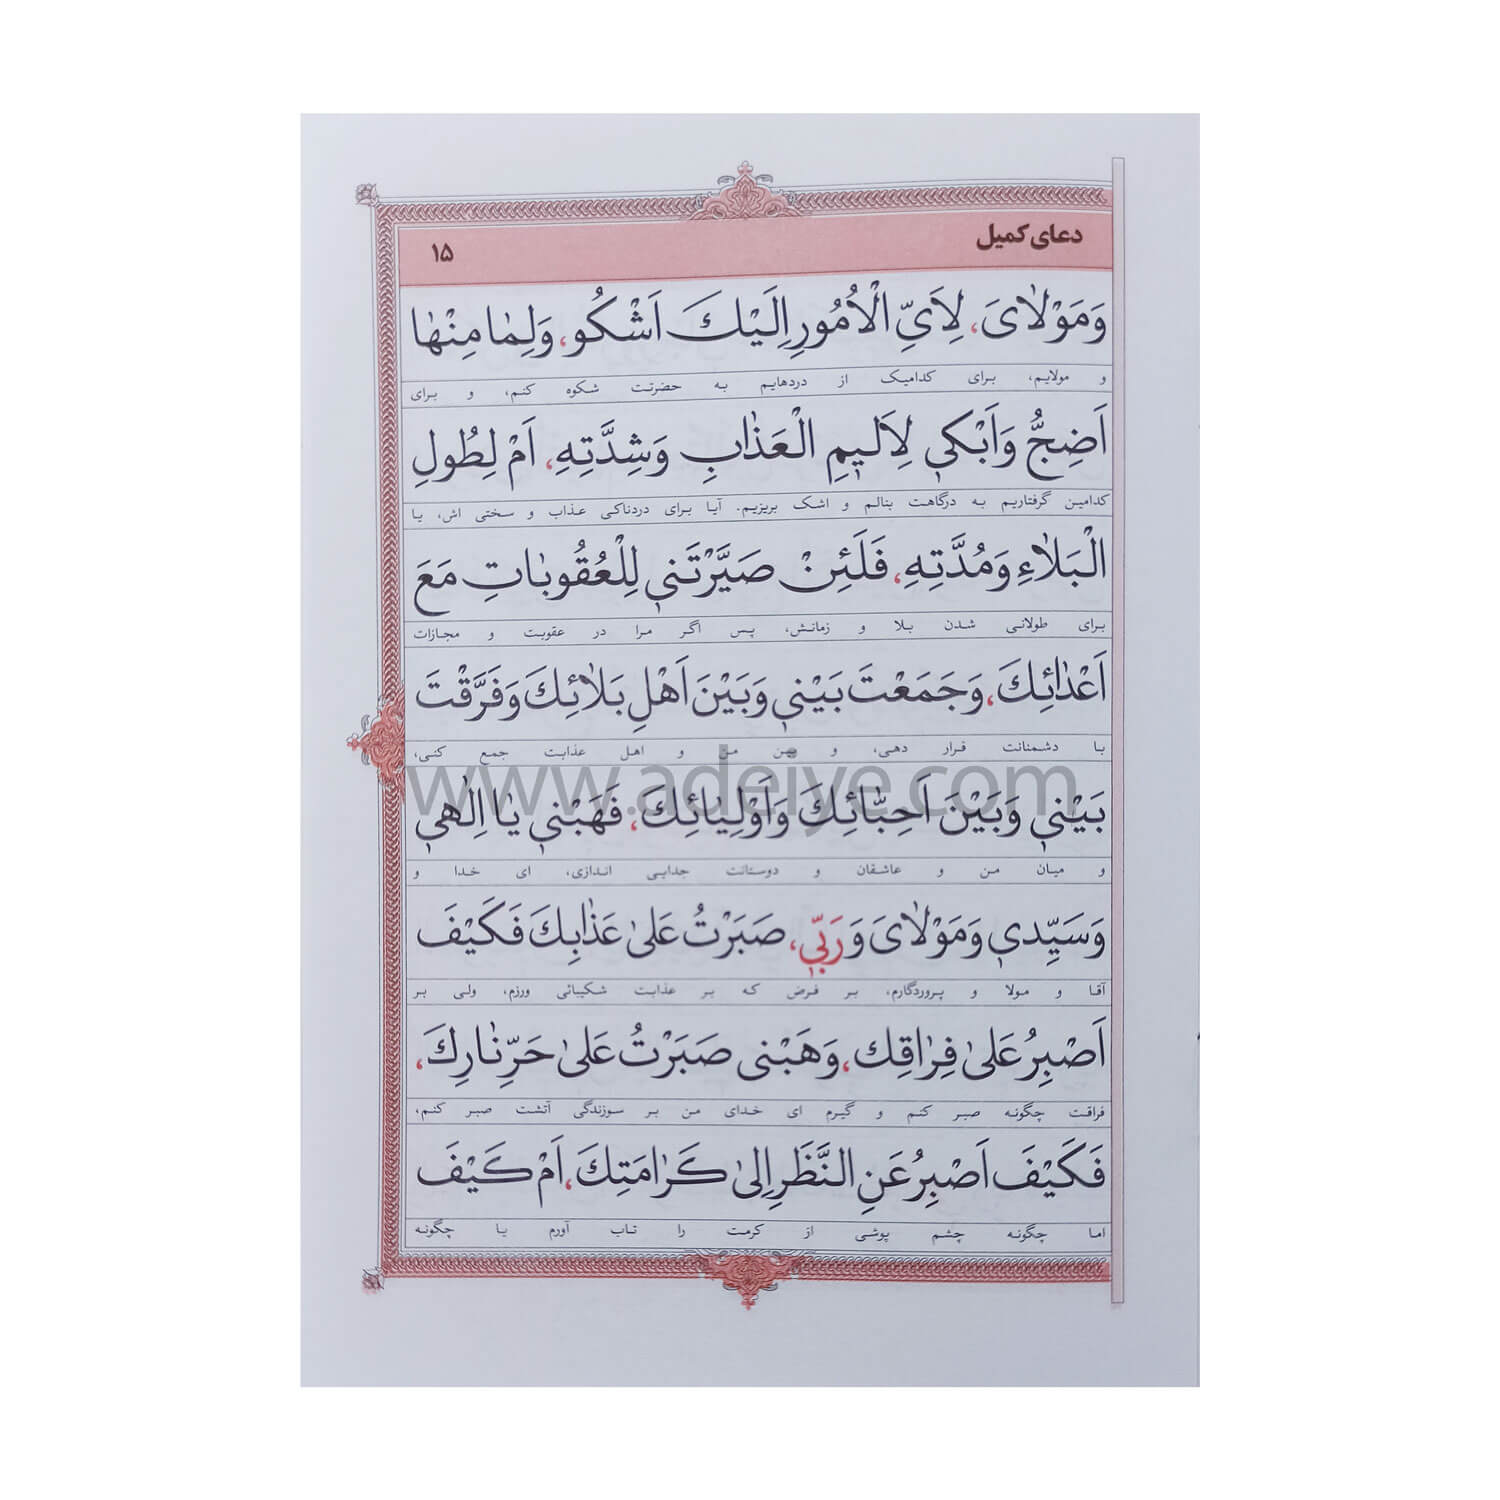 دعای کمیل
۱۵
وَ مَوْلٰاىَ، لِاَىِّ الْاُمُورِ اِلَيْكَ اَشْكُو، وَ لِمٰا مِنْهٰا
و مولایم، برای کدامیک از دردهایم به حضرتت شکوه کنم، و برای
اَضِجُّ وَ اَبْكي لِاَليمِ الْعَذٰابِ وَ شِدَّتِهِ، اَمْ لِطُولِ
کدامین گرفتاریم به درگاهت بنالم و اشک بریزیم. آیا برای دردناکی عذاب و سختی اش، یا
الْبَلٰاءِ وَ مُدَّتِهِ، فَلَئِنْ صَيَّرْتَني لِلْعُقُوبٰاتِ مَعَ
برای طولانی شدن بلا و زمانش، پس اگر مرا در عقوبت و مجازات
اَعْدٰائِكَ، وَ جَمَعْتَ بَيْني وَ بَيْنَ اَهْلِ بَلٰائِكَ وَ فَرَّقْتَ
با دشمنانت قرار دهی، و بین من و اهل عذابت جمع کنی،
www.adeiye.com
بَيْني وَ بَيْنَ اَحِبّٰائِكَ وَ اَوْلِيٰائِكَ، فَهَبْني يٰا اِلٰهي
و میان من و عاشقان و دوستانت جدایی اندازی، ای خدا و
وَ سَيِّدي وَ مَوْلٰاىَ وَ رَبّي، صَبَرْتُ عَلىٰ عَذٰابِكَ فَكَيْفَ
آقا و مولا و پروردگارم، بر فرض که بر عذابت شکیبائی ورزم، ولی بر
اَصْبِرُ عَلىٰ فِرٰاقِك، وَ هَبْنى صَبَرْتُ عَلىٰ حَرِّ نٰارِكَ،
فراقت چگونه صبر کنم و گیرم ای خدای من بر سوزندگی آتشت صبر کنم،
فَكَيْفَ اَصْبِرُ عَنِ النَّظَرِ اِلىٰ كَرٰامَتِكَ، اَمْ كَيْفَ
اما چگونه چشم پوشی از کرمت را تاب آورم یا چگونه